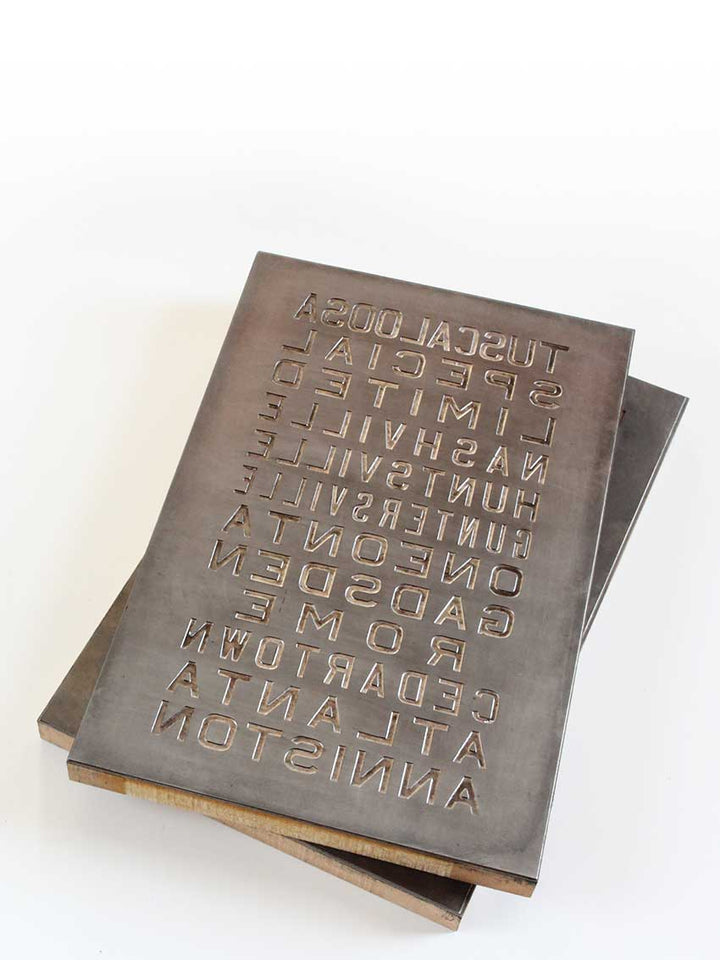 TUSCALOOSA
SPECIAL
LIMITED
NASHVILLE
HUNTSVILLE
GUNTERSVILLE
ONEONTA
GADSDEN
ROME
CEDARTOWN
ATLANTA
ANNISTON